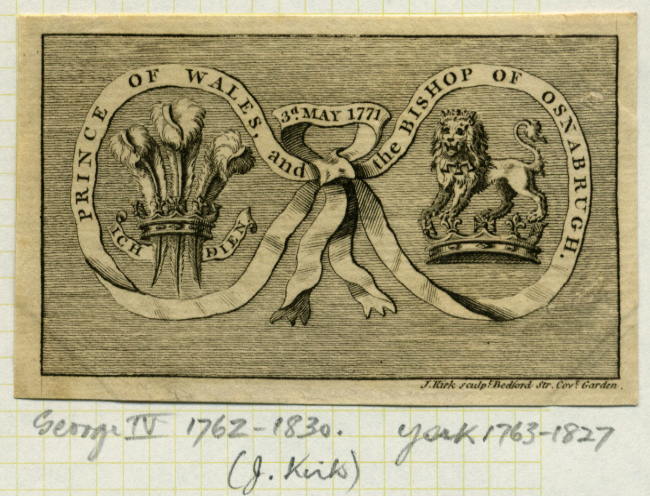 PRINCE OF WALES, and
3.d MAY 1771
the BISHOP OF OSNABRUGH.
ICH DIEN
J. Kirk sculpt. Bedford Str. Covt. Garden.
George IV 1762-1830. York 1763-1827
(J. Kirk)